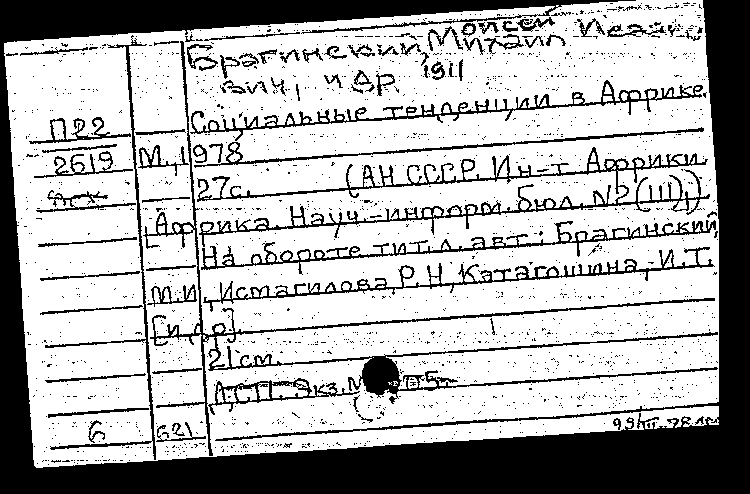 Моисей
Брагинский, Михаил Исаако
вич, и др. 1911
Социальные тенденции в Африке.
П22
2619 М., 1978
27с. (АН СССР. Ин-т Африки.
[Африка. Науч.-информ. бюл. №2 (III),)
На обороте тит. л. авт.: Брагинский,
М.И., Исмагилова, Р.Н, Катагошина, И.Т.
[и др].
21см.
Экз.
6 621